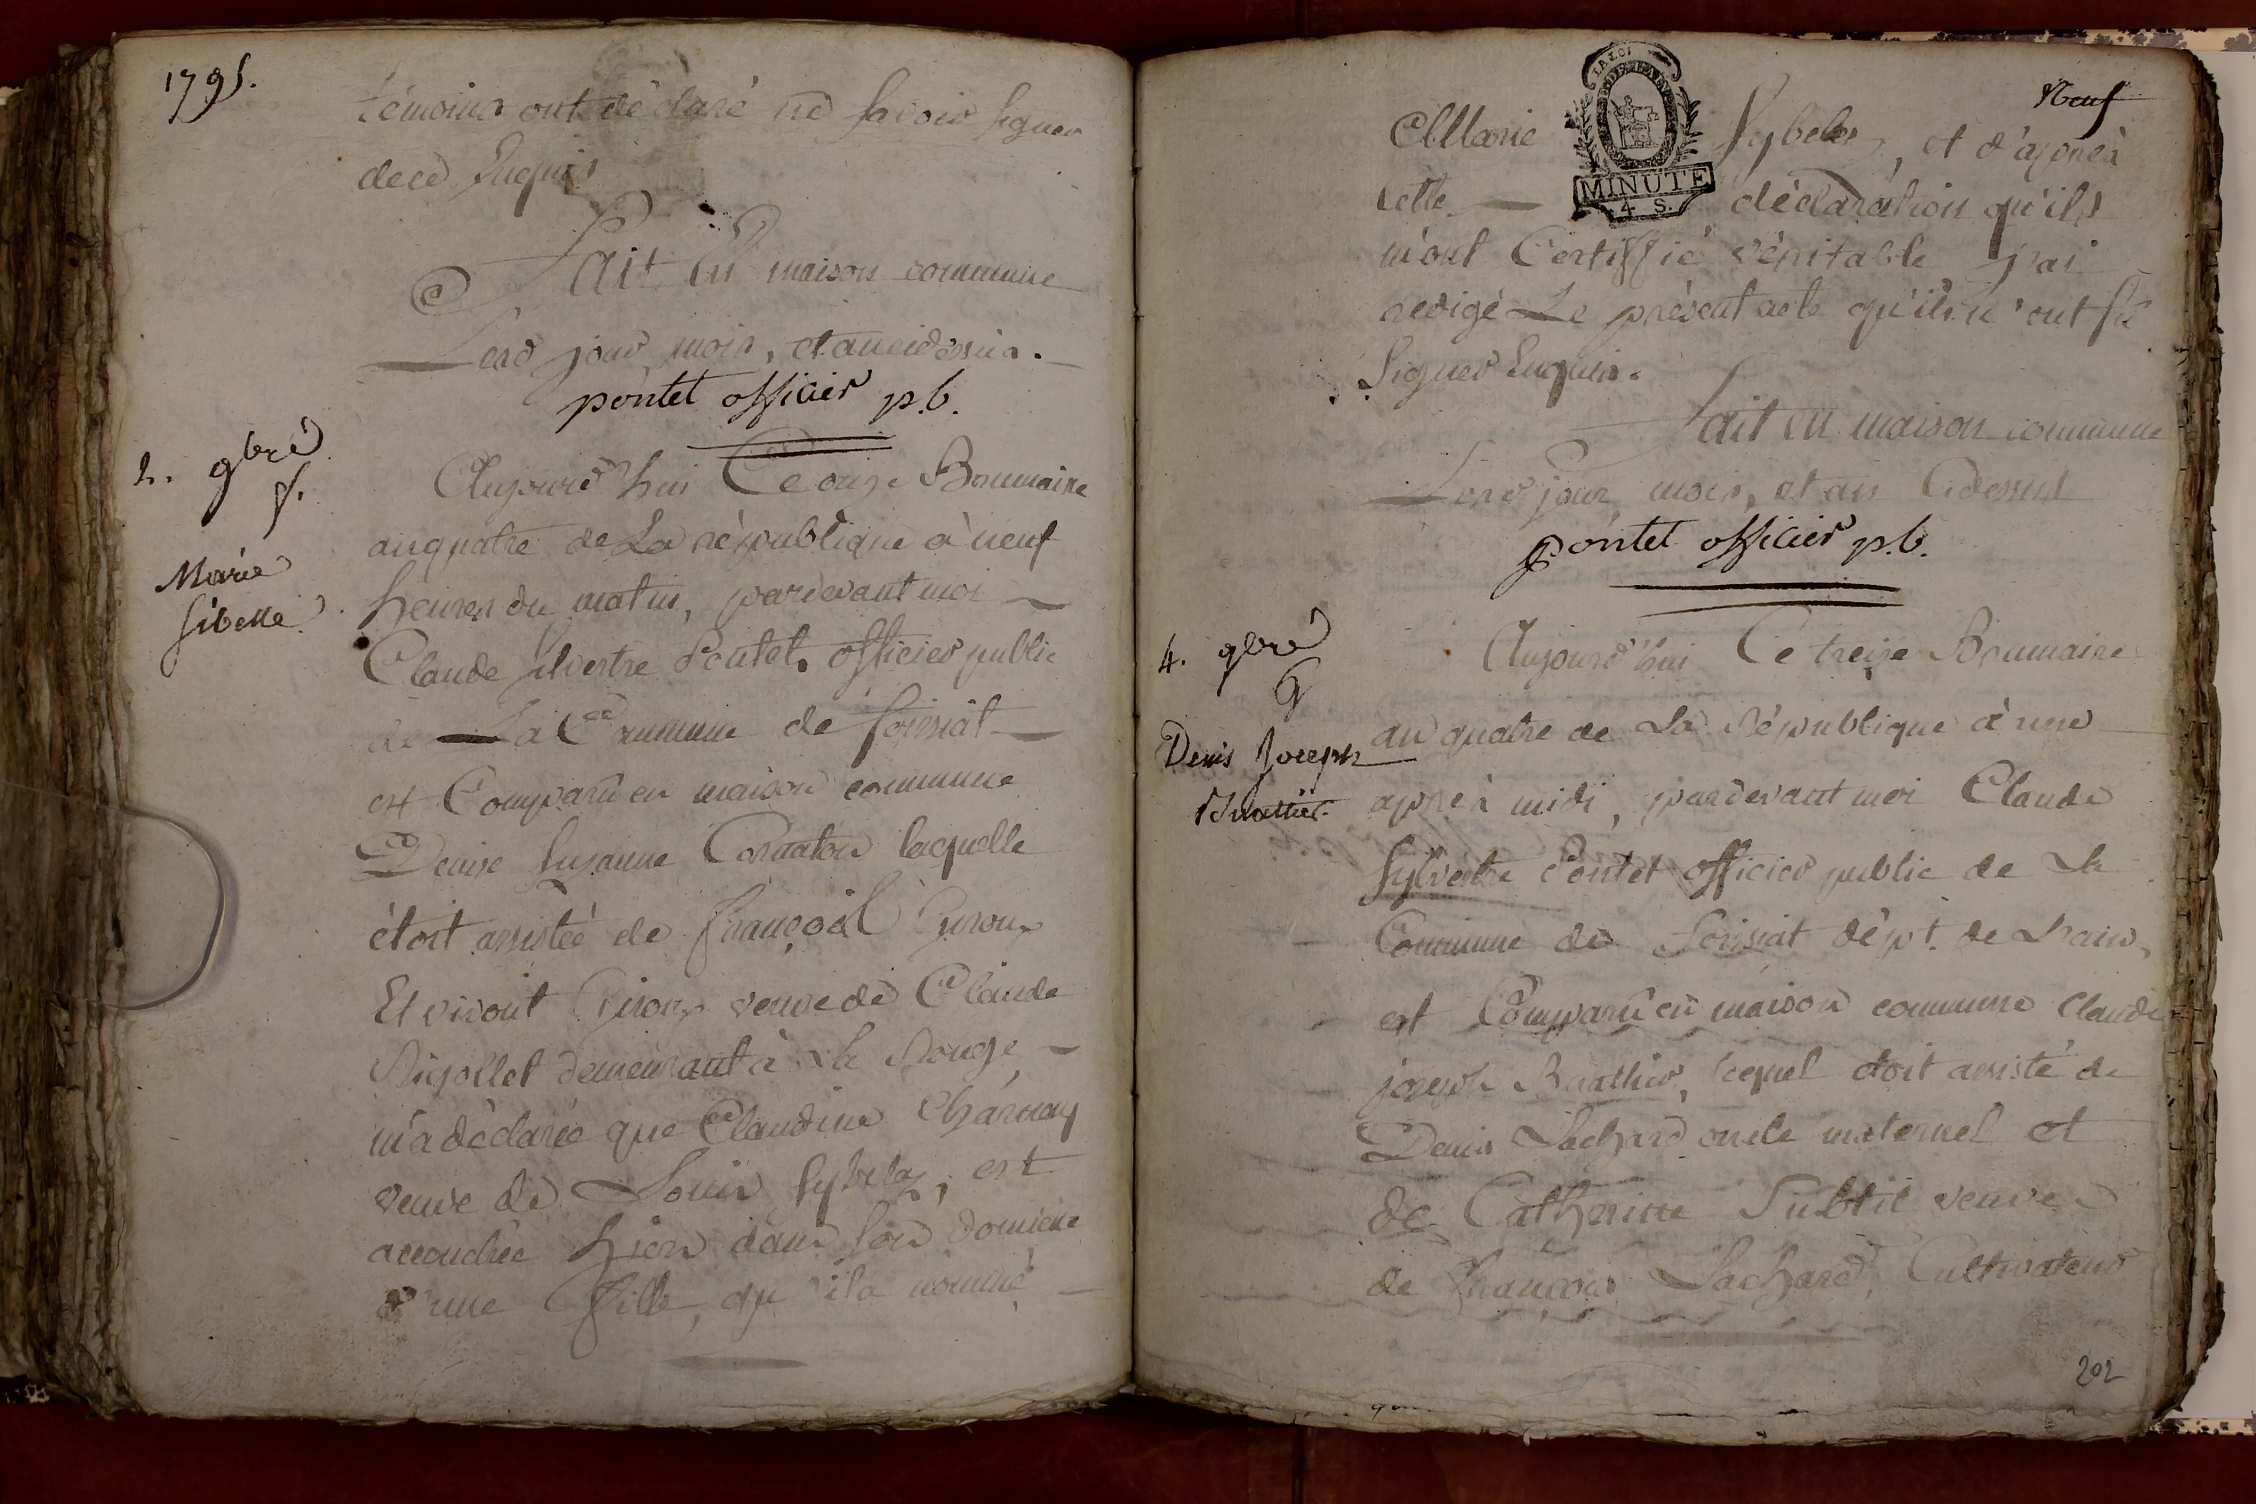 1795.
témoins ont déclaré ne savoir signer
de ce Enquis
Fait en maison commune
Lesd jour, mois, et an cidessus.
pontet officier p.b.
2. 9bre
f.
Marie
Sibelle
Aujourd'hui Ce onze Brumaire
an quatre de La république à neuf
heures du matin, pardevant moi
Claude silvestre Pontet officier public
de La Commune de foissiat
est Comparu en maison commune
Denise Suzanne Cormaton laquelle
étoit assistée de françois Giroux
Et vivant Giroux veuve de Claude
Rigollet demeurant à la Rouge,
m'a déclarée que Claudine Charnay
veuve de Louis Sybelas, est
accouchée hier dans son domicile
d'une fille, qu'ila nommé
Neuf
LA LOI
MINUTE
4 S.
Marie Sybelas, et d'après
cette déclaration qu'ils
m'ont Certiffié véritable j'ai
redigé Le présent acte qu'ils n'ont sû
Signer Enquis.
Fait en maison commune
Lesd jour, mois, et an Cidessus
pontet officier p.b.
4. 9bre
G
Denis Joseph
Bruattier
Aujourd'hui Ce treize Brumaire
an quatre de La République à une
après midi, pardevant moi Claude
Sylvestre Pontet officier public de La
Commune de Foissiat dép.t de Lain,
est Comparu en maison commune Claude
joseph Buathier, lequel étoit assisté de
Denis Sachard oncle maternel et
de Catherine Subtil veuve
de François Sachard, Cultivateur
202